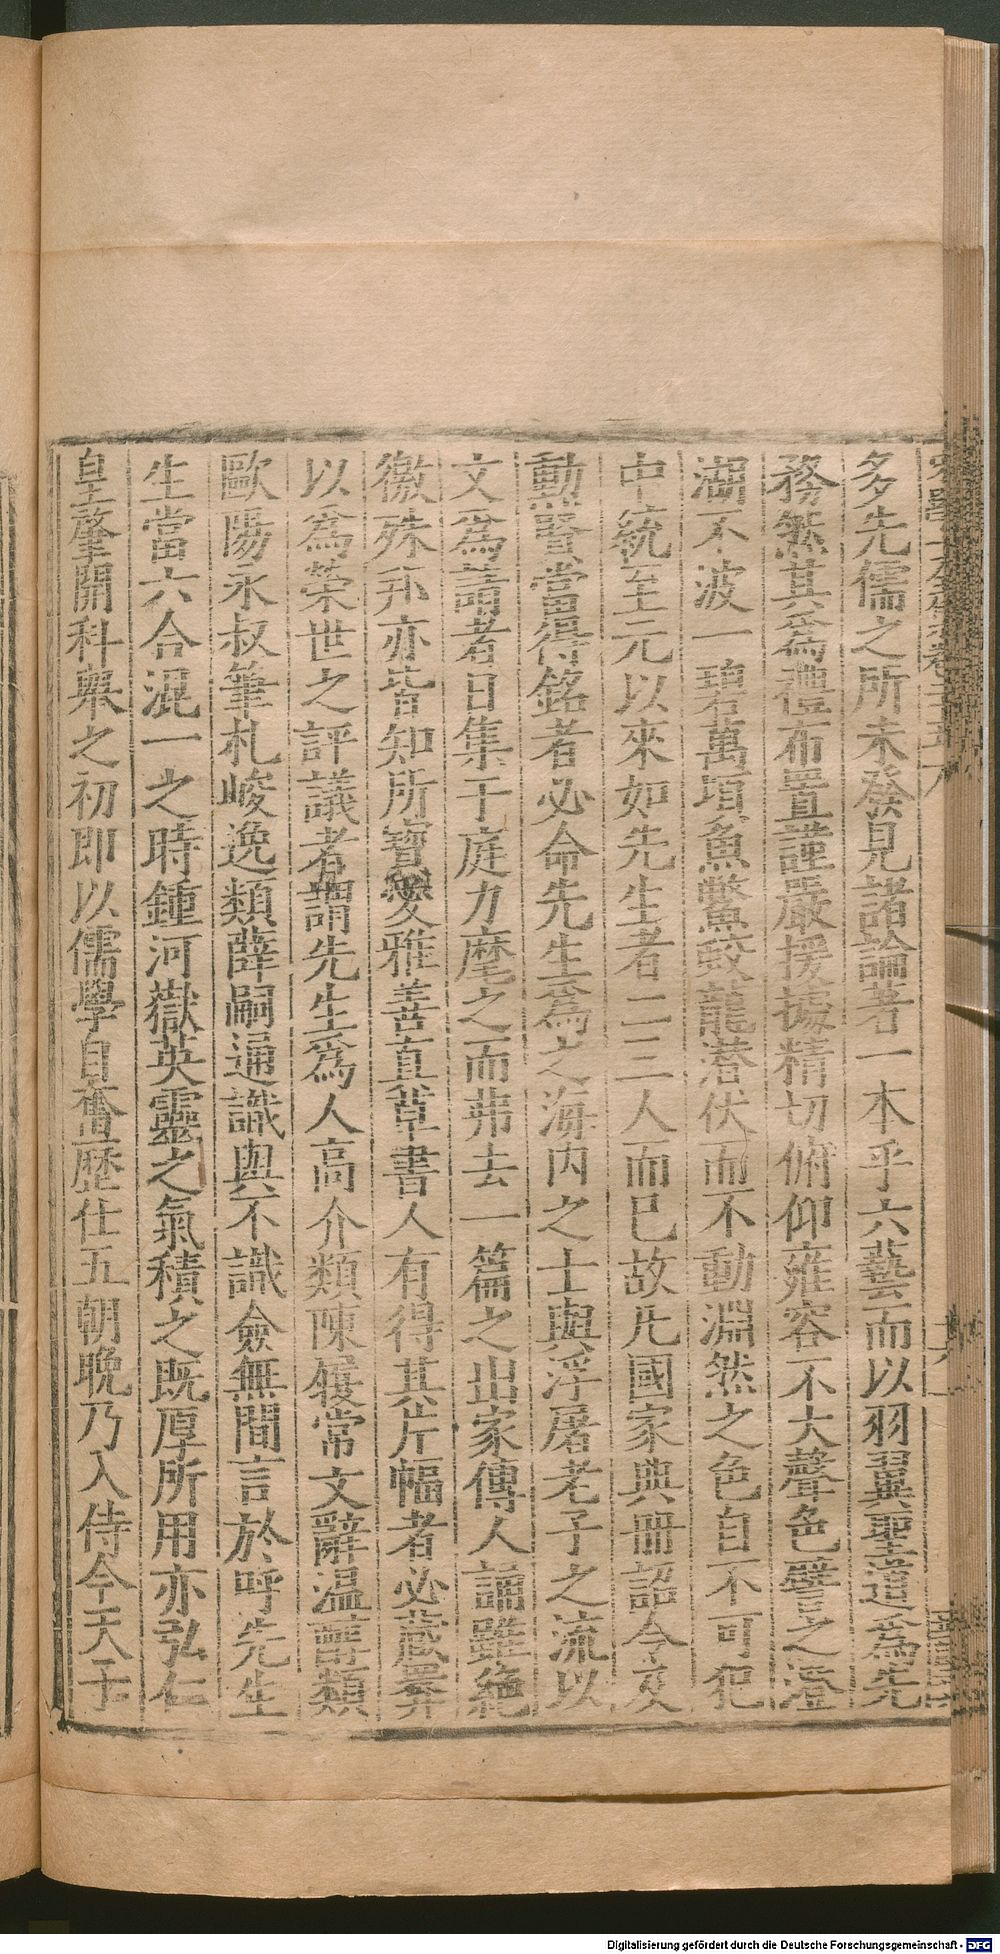 多先儒之所未發見諸論著一本乎六藝而以羽翼聖道爲先
務然其爲禮布置謹嚴援據精切俯仰雍容不大聲色譬之澄
湖不波一碧萬頃魚鱉蛟龍潛伏而不動淵然之色自不可犯
中統至元以來如先生者二三人而已故凡國家典冊詔令及
勲賢當得銘者必命先生爲之海内之士與浮屠老子之流以
文爲請者日集于庭力麾之而弗去一篇之出家傳人誦雖絶
徼殊邦亦皆知所寶愛雅善眞草書人有得其片幅者必藏弆
以爲榮世之評議者謂先生爲人高介類陳履常文辭温醇類
歐陽永叔筆札峻逸類薛嗣通識與不識僉無間言於呼先生
生當六合混一之時鍾河嶽英靈之氣積之既厚所用亦弘仁
皇肇開科舉之初即以儒學自奮歷仕五朝晚乃入侍今天子
Digitalisierung gefördert durch die Deutsche Forschungsgemeinschaft - DFG